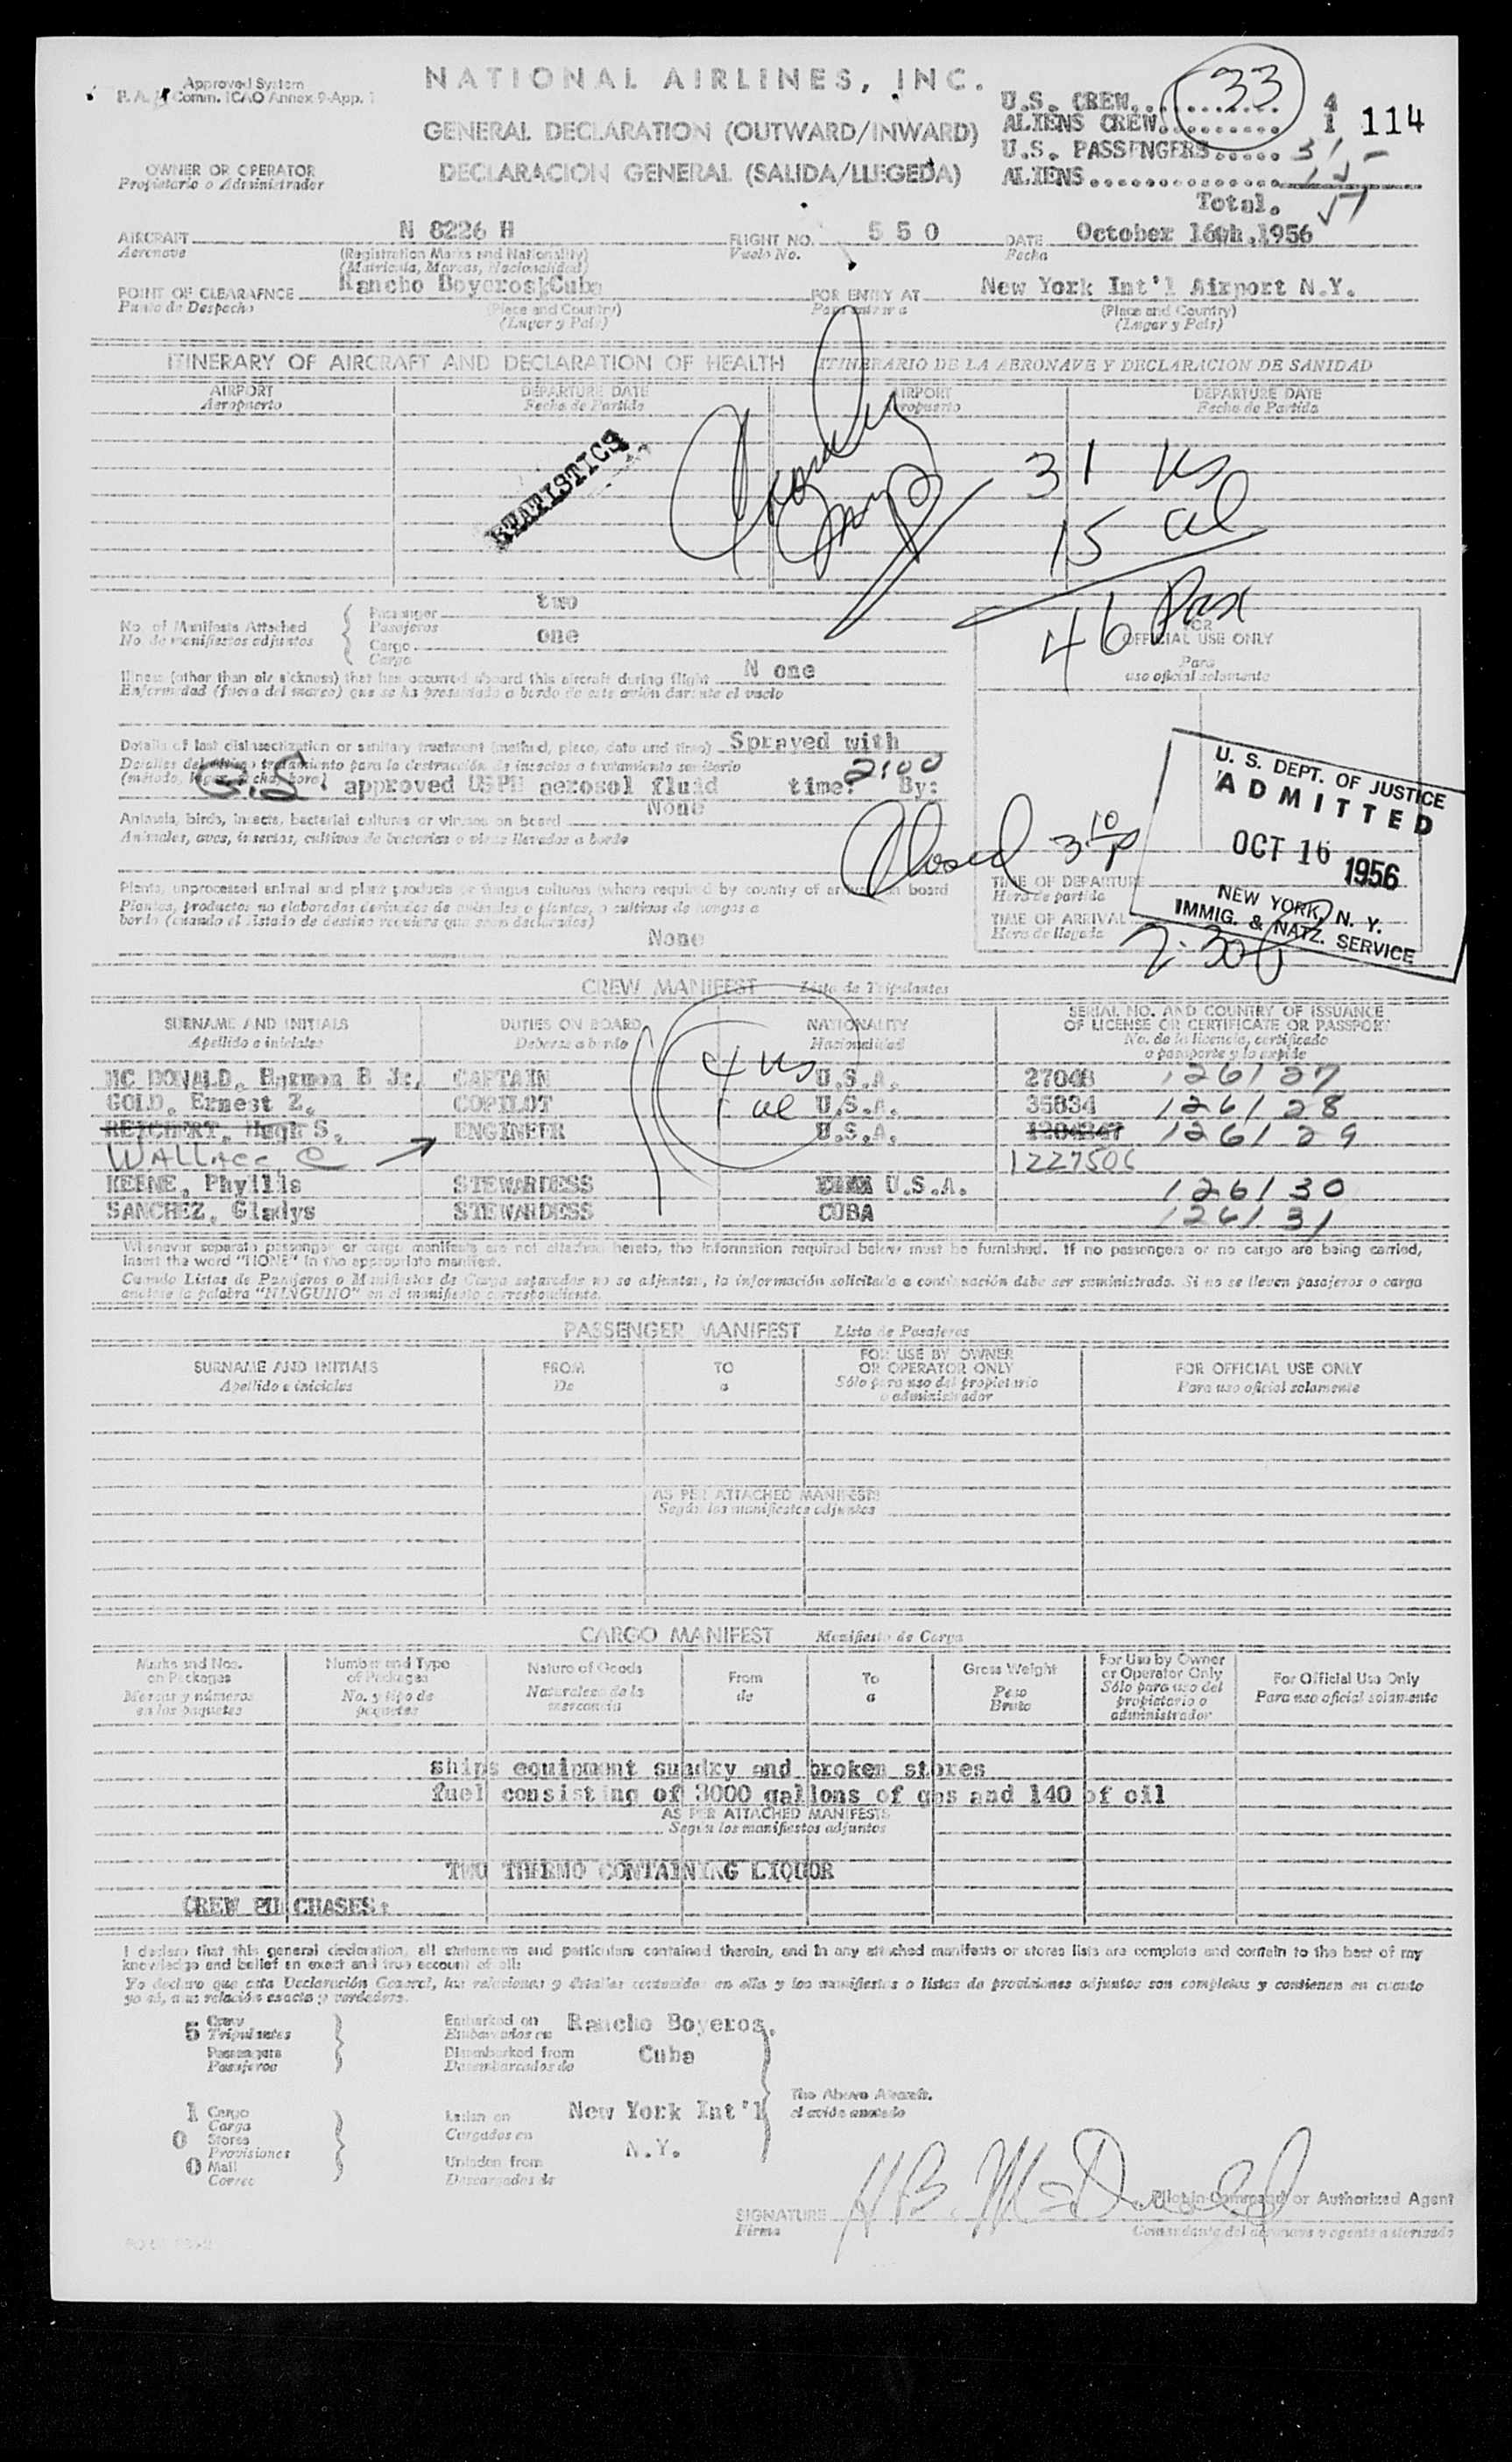 Approved System
P. A. A. Comm. ICAO Annex 9-App. 1
NATIONAL AIRLINES, INC.
GENERAL DECLARATION (OUTWARD/INWARD)
DECLARACION GENERAL (SALIDA/LLEGEDA)
33
U.S. CREW............ 4
ALIENS CREW.......... 1
114
U.S. PASSENGERS..... 31
ALIENS............... 15
Total. 51
OWNER OR OPERATOR
Propietario o Administrador
AIRCRAFT N 8226 H FLIGHT NO. 5 5 0 DATE October 16th,1956
Aeronave (Registration Marks and Nationality) Vuelo No. Fecha
(Matricula, Marcas, Nacionalidad)
POINT OF CLEARAFNCE Rancho Boyeros,Cuba FOR ENTRY AT New York Int'l Airport N.Y.
Punto de Despacho (Place and Country) Para entrar a (Place and Country)
(Lugar y Pais) (Lugar y Pais)
ITINERARY OF AIRCRAFT AND DECLARATION OF HEALTH ITINERARIO DE LA AERONAVE Y DECLARACION DE SANIDAD
AIRPORT DEPARTURE DATE AIRPORT DEPARTURE DATE
Aeropuerto Fecha de Partida Aeropuerto Fecha de Partida
STATISTICS
31 us
15 al
46 Pax
No. of Manifests Attached Passenger two
No de manifiestos adjuntos Pasajeros
Cargo one
Cargo
Illness (other than air sickness) that has occurred aboard this aircraft during flight N one
Enfermedad (fuera del mareo) que se ha presentado a bordo de este avión durante el vuelo
FOR
OFFICIAL USE ONLY
Para
uso oficial solamente
Details of last disinsectization or sanitary treatment (method, place, date and time) Sprayed with
Detalles del último tratamiento para la destrucción de insectos o tratamiento sanitario
(método, lugar, fecha, hora)
G.S. approved USPH aerosol fluid time: 2:00 By:
Animals, birds, insects, bacterial cultures or viruses on board None
Animales, aves, insectos, cultivos de bacterias o virus llevados a bordo
Closed 3 10 P
U. S. DEPT. OF JUSTICE
ADMITTED
OCT 16 1956
NEW YORK, N. Y.
IMMIG. & NATZ. SERVICE
Plants, unprocessed animal and plant products or fungus cultures (where required by country of arrival) on board
Plantas, productos no elaborados derivados de animales o plantas, o cultivos de hongos a
bordo (cuando el Estado de destino requiera que sean declarados)
None
TIME OF DEPARTURE
Hora de partida
TIME OF ARRIVAL
Hora de llegada
2:30P
CREW MANIFEST Lista de Tripulantes
SURNAME AND INITIALS DUTIES ON BOARD NATIONALITY SERIAL NO. AND COUNTRY OF ISSUANCE
OF LICENSE OR CERTIFICATE OR PASSPORT
Apellido e iniciales Deberes a bordo Nacionalidad No. de la licencia, certificado
o pasaporte y lo expide
4 us
1 al
MC DONALD, Harmon B Jr, CAPTAIN U.S.A. 27048 126127
GOLD, Ernest Z. COPILOT U.S.A. 35834 126128
REICHERT, Hugh S. ENGINEER U.S.A. 1204247 126129
WALLACE C 1227506
KEENE, Phyllis STEWARDESS U.S.A. 126130
SANCHEZ, Gladys STEWARDESS CUBA 126131
Whenever separate passenger or cargo manifests are not attached hereto, the information required below must be furnished. If no passengers or no cargo are being carried,
insert the word "NONE" in the appropriate manifest.
Cuando Listas de Pasajeros o Manifiestos de Carga separados no se adjuntan, la información solicitada a continuación debe ser suministrada. Si no se lleven pasajeros o carga
anótese la palabra "NINGUNO" en el manifiesto correspondiente.
PASSENGER MANIFEST Lista de Pasajeros
SURNAME AND INITIALS FROM TO FOR USE BY OWNER
OR OPERATOR ONLY FOR OFFICIAL USE ONLY
Apellido e iniciales De a Sólo para uso del propietario
o administrador Para uso oficial solamente
AS PER ATTACHED MANIFESTS
Según los manifiestos adjuntos
CARGO MANIFEST Manifiesto de Carga
Marks and Nos.
on Packages
Marcas y números
en los paquetes
Number and Type
of Packages
No. y tipo de
paquetes
Nature of Goods
Naturaleza de la
mercancia
From
de
To
a
Gross Weight
Peso
Bruto
For Use by Owner
or Operator Only
Sólo para uso del
propietario o
administrador
For Official Use Only
Para uso oficial solamente
ships equipment sundry and broken stores
fuel consisting of 3000 gallons of gas and 140 of oil
AS PER ATTACHED MANIFESTS
Según los manifiestos adjuntos
TWO THERMO CONTAINING LIQUOR
CREW PURCHASES:
I declare that this general declaration, all statements and particulars contained therein, and in any attached manifests or stores lists are complete and contain to the best of my
knowledge and belief an exact and true account of all:
Yo declaro que esta Declaración General, las relaciones y detalles contenidos en ella y los manifiestos o listas de provisiones adjuntos son completos y contienen en cuanto
yo sé, una relación exacta y verdadera.
5 Crew
Tripulantes
Passengers
Pasajeros
Embarked on Rancho Boyeros,
Embarcados en
Disembarked from Cuba
Desembarcados de
The Above Aircraft.
el avión anotado
1 Cargo
Carga
0 Stores
Provisiones
0 Mail
Correo
Laden on New York Int'l
Cargados en
Unladen from N.Y.
Descargados de
SIGNATURE H B. McDonald
Firma
Pilot-in-Command or Authorized Agent
Comandante del aeronave o agente autorizado